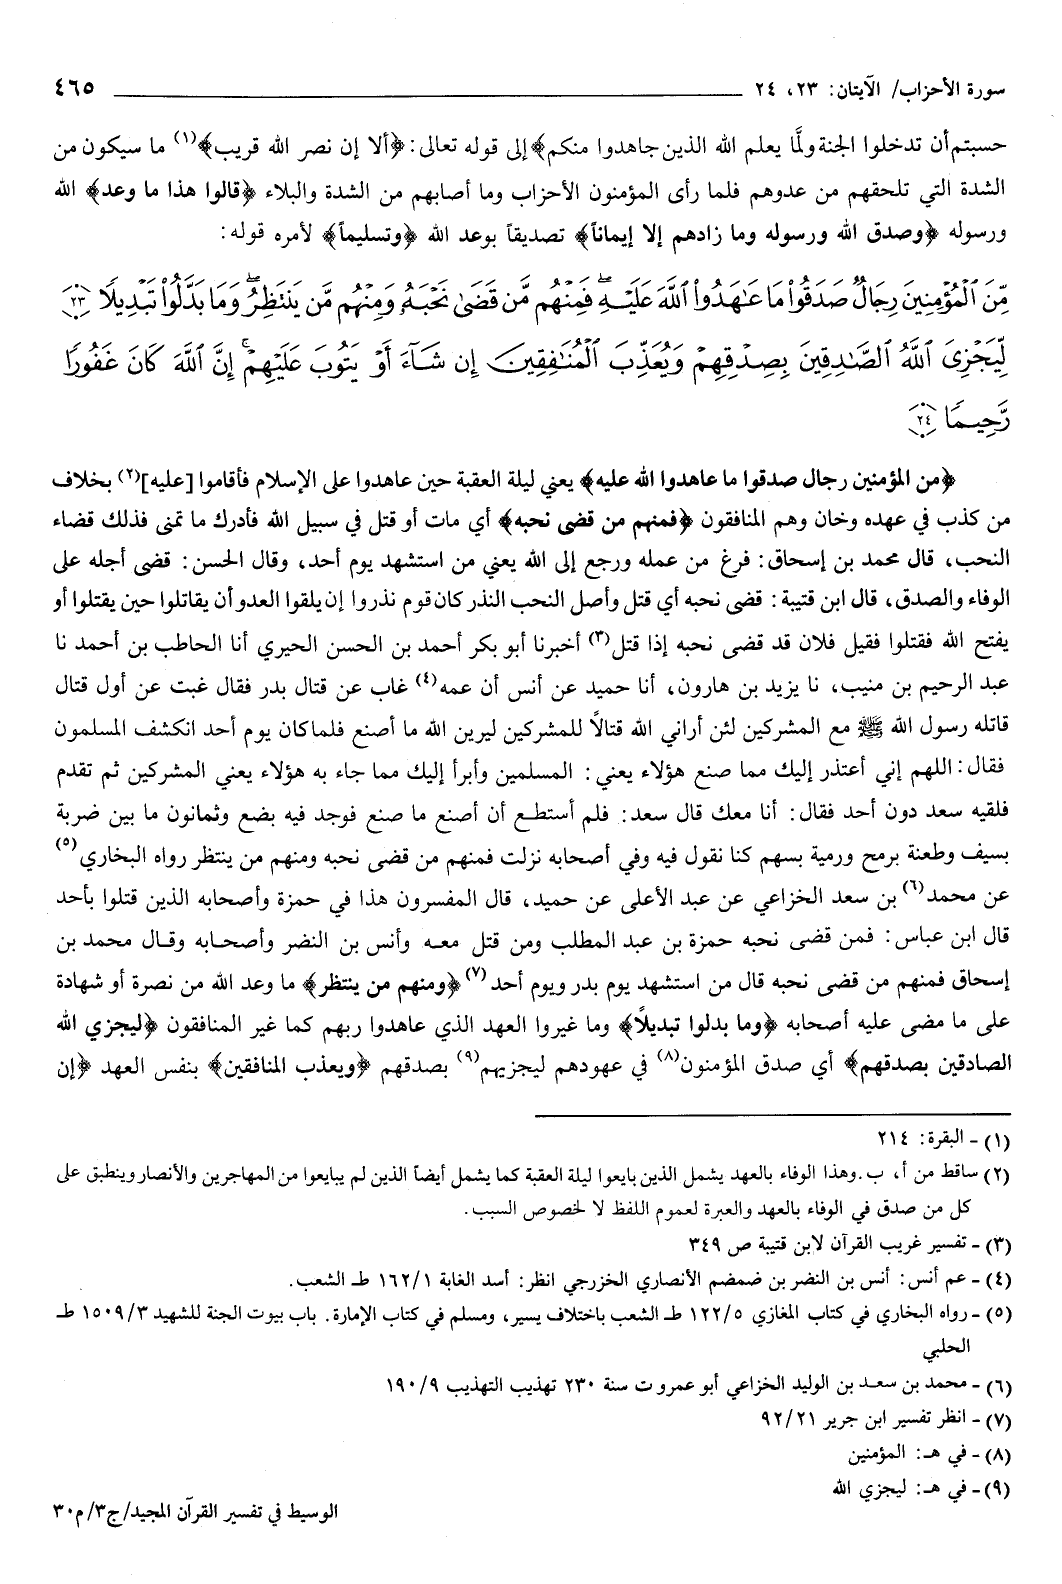 سورة الأحزاب/ الآيتان: ٢٣، ٢٤ ٤٦٥
حسبتم أن تدخلوا الجنة ولمَّا يعلم الله الذين جاهدوا منكم﴾ إلى قوله تعالى: ﴿ألا إن نصر الله قريب﴾(١) ما سيكون من
الشدة التي تلحقهم من عدوهم فلما رأى المؤمنون الأحزاب وما أصابهم من الشدة والبلاء ﴿قالوا هذا ما وعد﴾ الله
ورسوله ﴿وصدق الله ورسوله وما زادهم إلا إيماناً﴾ تصديقاً بوعد الله ﴿وتسليماً﴾ لأمره قوله:
مِّنَ ٱلْمُؤْمِنِينَ رِجَالٌ صَدَقُوا۟ مَا عَـٰهَدُوا۟ ٱللَّهَ عَلَيْهِ ۖ فَمِنْهُم مَّن قَضَىٰ نَحْبَهُۥ وَمِنْهُم مَّن يَنتَظِرُ ۖ وَمَا بَدَّلُوا۟ تَبْدِيلًا ٢٣
لِّيَجْزِىَ ٱللَّهُ ٱلصَّـٰدِقِينَ بِصِدْقِهِمْ وَيُعَذِّبَ ٱلْمُنَـٰفِقِينَ إِن شَآءَ أَوْ يَتُوبَ عَلَيْهِمْ ۚ إِنَّ ٱللَّهَ كَانَ غَفُورًا
رَّحِيمًا ٢٤
﴿من المؤمنين رجال صدقوا ما عاهدوا الله عليه﴾ يعني ليلة العقبة حين عاهدوا على الإسلام فأقاموا [عليه](٢) بخلاف
من كذب في عهده وخان وهم المنافقون ﴿فمنهم من قضى نحبه﴾ أي مات أو قتل في سبيل الله فأدرك ما تمنى فذلك قضاء
النحب، قال محمد بن إسحاق: فرغ من عمله ورجع إلى الله يعني من استشهد يوم أحد، وقال الحسن: قضى أجله على
الوفاء والصدق، قال ابن قتيبة: قضى نحبه أي قتل وأصل النحب النذر كان قوم نذروا إن يلقوا العدو أن يقاتلوا حين يقتلوا أو
يفتح الله فقتلوا فقيل فلان قد قضى نحبه إذا قتل(٣) أخبرنا أبو بكر أحمد بن الحسن الحيري أنا الحاطب بن أحمد نا
عبد الرحيم بن منيب، نا يزيد بن هارون، أنا حميد عن أنس أن عمه(٤) غاب عن قتال بدر فقال غبت عن أول قتال
قاتله رسول الله ﷺ مع المشركين لئن أراني الله قتالاً للمشركين ليرين الله ما أصنع فلما كان يوم أحد انكشف المسلمون
فقال: اللهم إني أعتذر إليك مما صنع هؤلاء يعني: المسلمين وأبرأ إليك مما جاء به هؤلاء يعني المشركين ثم تقدم
فلقيه سعد دون أحد فقال: أنا معك قال سعد: فلم أستطع أن أصنع ما صنع فوجد فيه بضع وثمانون ما بين ضربة
بسيف وطعنة برمح ورمية بسهم كنا نقول فيه وفي أصحابه نزلت فمنهم من قضى نحبه ومنهم من ينتظر رواه البخاري(٥)
عن محمد(٦) بن سعد الخزاعي عن عبد الأعلى عن حميد، قال المفسرون هذا في حمزة وأصحابه الذين قتلوا بأحد
قال ابن عباس: فمن قضى نحبه حمزة بن عبد المطلب ومن قتل معه وأنس بن النضر وأصحابه وقال محمد بن
إسحاق فمنهم من قضى نحبه قال من استشهد يوم بدر ويوم أحد(٧) ﴿ومنهم من ينتظر﴾ ما وعد الله من نصرة أو شهادة
على ما مضى عليه أصحابه ﴿وما بدلوا تبديلاً﴾ وما غيروا العهد الذي عاهدوا ربهم كما غير المنافقون ﴿ليجزي الله
الصادقين بصدقهم﴾ أي صدق المؤمنون(٨) في عهودهم ليجزيهم(٩) بصدقهم ﴿ويعذب المنافقين﴾ بنفس العهد ﴿إن
(١) - البقرة: ٢١٤
(٢) ساقط من أ، ب. وهذا الوفاء بالعهد يشمل الذين بايعوا ليلة العقبة كما يشمل أيضاً الذين لم يبايعوا من المهاجرين والأنصار وينطبق على
كل من صدق في الوفاء بالعهد والعبرة لعموم اللفظ لا لخصوص السبب.
(٣) - تفسير غريب القرآن لابن قتيبة ص ٣٤٩
(٤) - عم أنس: أنس بن النضر بن ضمضم الأنصاري الخزرجي انظر: أسد الغابة ١/١٦٢ طـ الشعب.
(٥) - رواه البخاري في كتاب المغازي ٥/١٢٢ طـ الشعب باختلاف يسير، ومسلم في كتاب الإمارة. باب بيوت الجنة للشهيد ٣/١٥٠٩ طـ
الحلبي
(٦) - محمد بن سعد بن الوليد الخزاعي أبو عمرو ت سنة ٢٣٠ تهذيب التهذيب ٩/١٩٠
(٧) - انظر تفسير ابن جرير ٢١/٩٢
(٨) - في هـ: المؤمنين
(٩) - في هـ: ليجزي الله
الوسيط في تفسير القرآن المجيد/ج٣/م٣٠